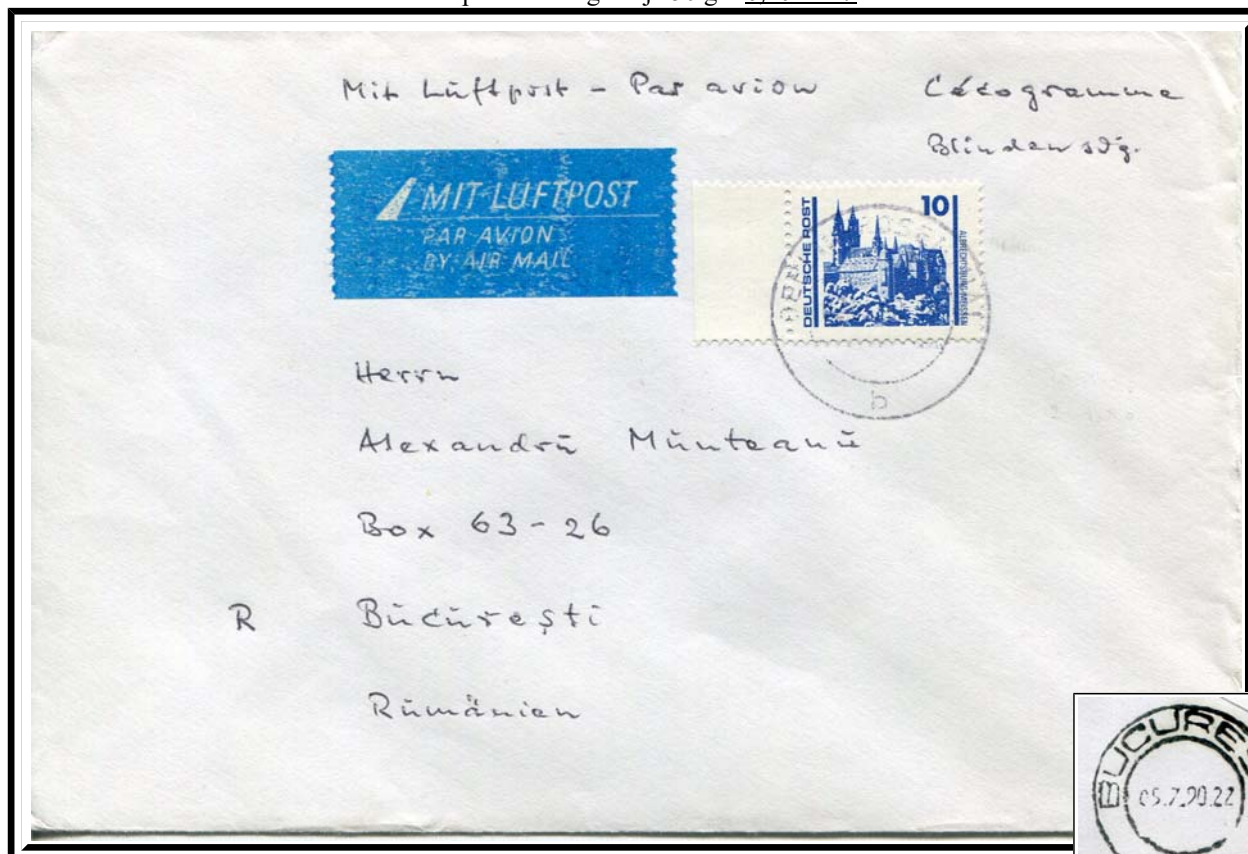 Mit Luftpost - Par avion
Cécogramme
Blindensdg.
MIT LUFTPOST
PAR AVION
BY AIR MAIL
10
DEUTSCHE POST
ALBRECHTSBURG MEISSEN
b
Herrn
Alexandru Munteanu
Box 63-26
R București
Rumänien
BUCURE
05.7.90.22